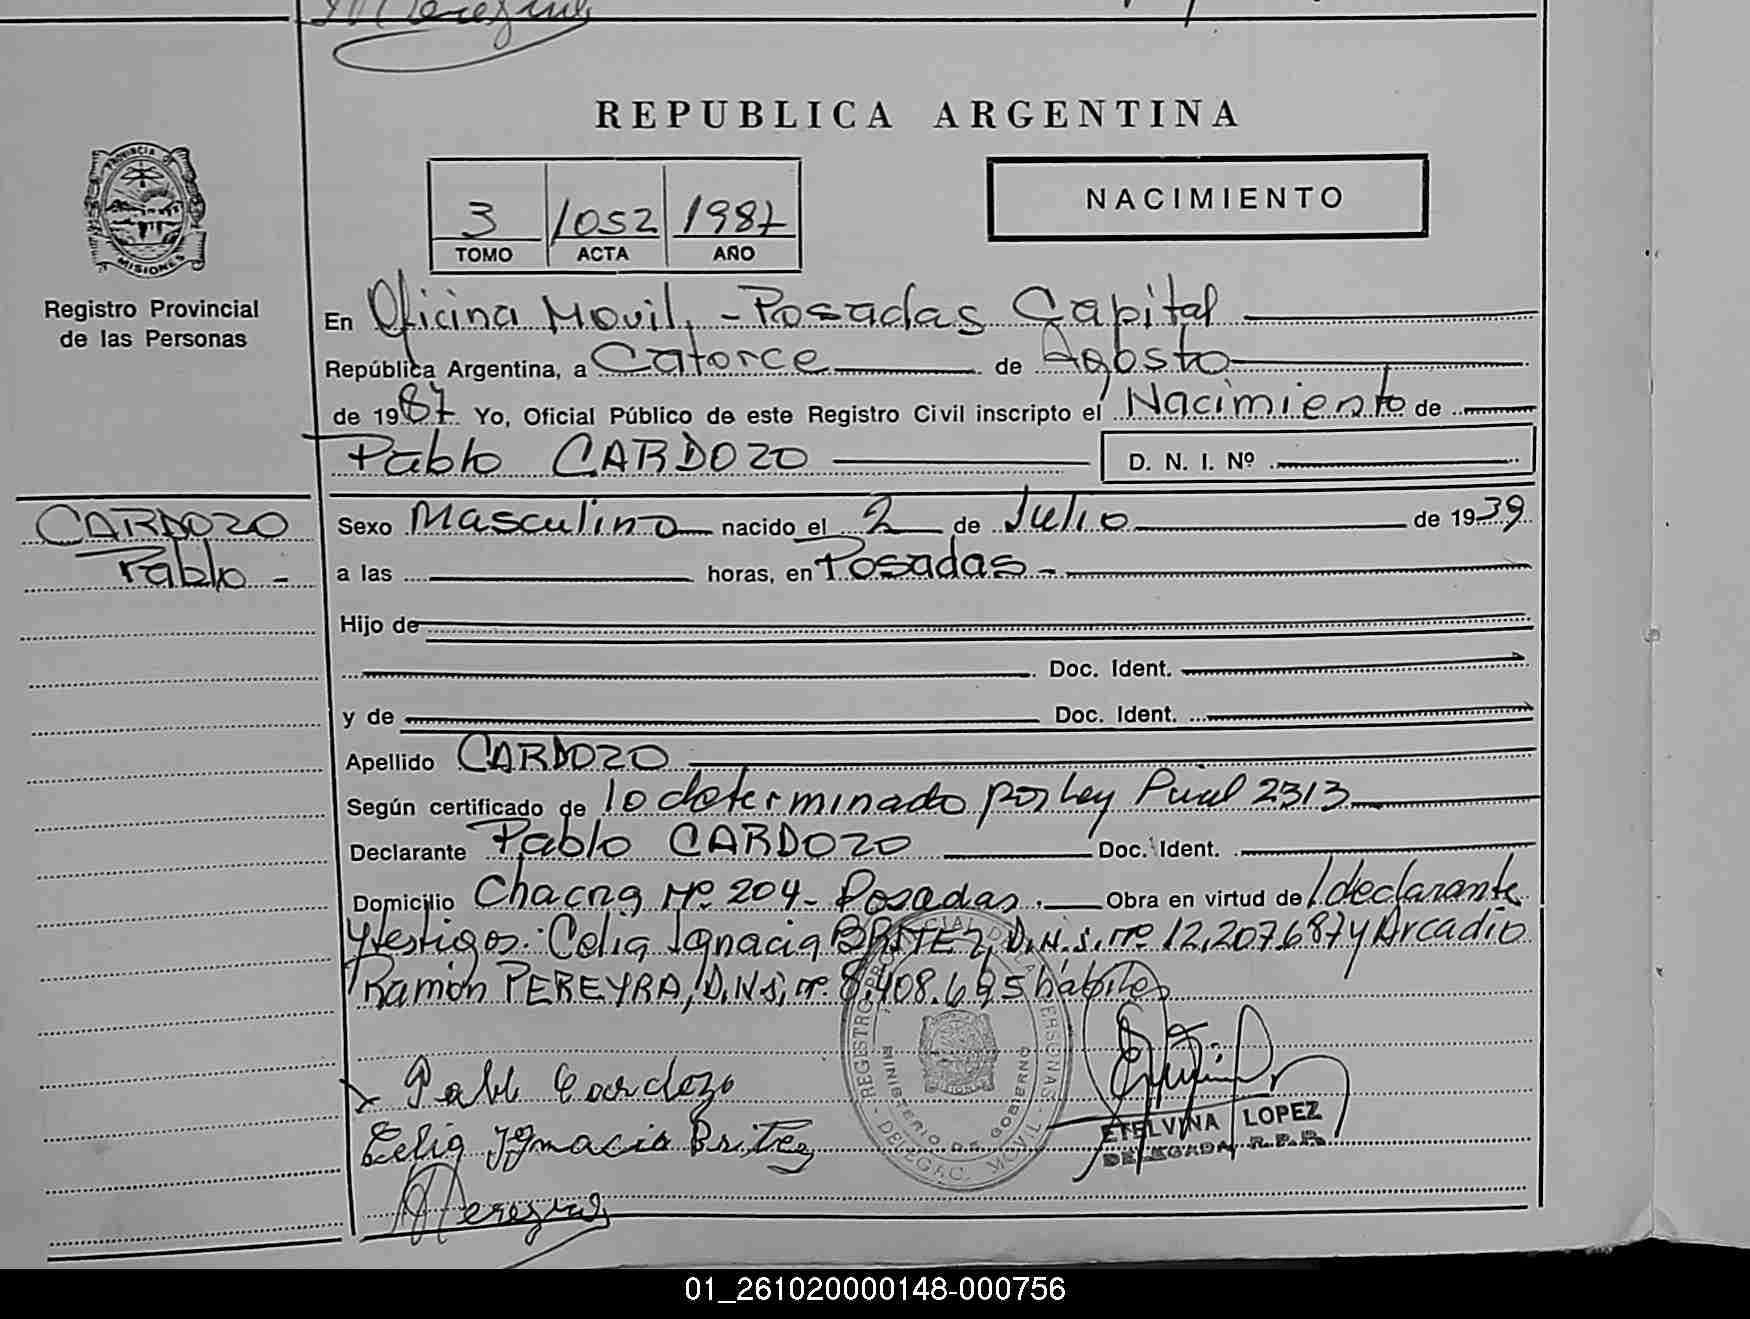 REPUBLICA ARGENTINA
PROVINCIA
MISIONES
Registro Provincial
de las Personas
3 1052 1987
TOMO ACTA AÑO
NACIMIENTO
En Oficina Movil, - Posadas Capital
República Argentina, a Catorce de Agosto
de 1987 Yo, Oficial Público de este Registro Civil inscripto el Nacimiento de
Pablo CARDOZO D. N. I. Nº
CARDOZO
Pablo -
Sexo Masculino nacido el 2 de Julio de 1939
a las horas, en Posadas -
Hijo de
Doc. Ident.
y de Doc. Ident.
Apellido CARDOZO
Según certificado de lo determinado por Ley 2313
Declarante Pablo CARDOZO Doc. Ident.
Domicilio Chacra Nº 204 - Posadas. Obra en virtud de l declarante
y testigos: Celia Ignacia BRITEZ, D.N.I. nº 12.207.687 y Arcadio
Ramón PEREYRA, D.N.I. nº 8.408.695 hábiles
Pablo Cardozo
Celia Ignacia Britez
REGISTRO PROVINCIAL DE LAS PERSONAS - DELEGAC. MOVIL -
MINISTERIO DE GOBIERNO
ETELVINA LOPEZ
DELEGADA R.P.P.
01_261020000148-000756